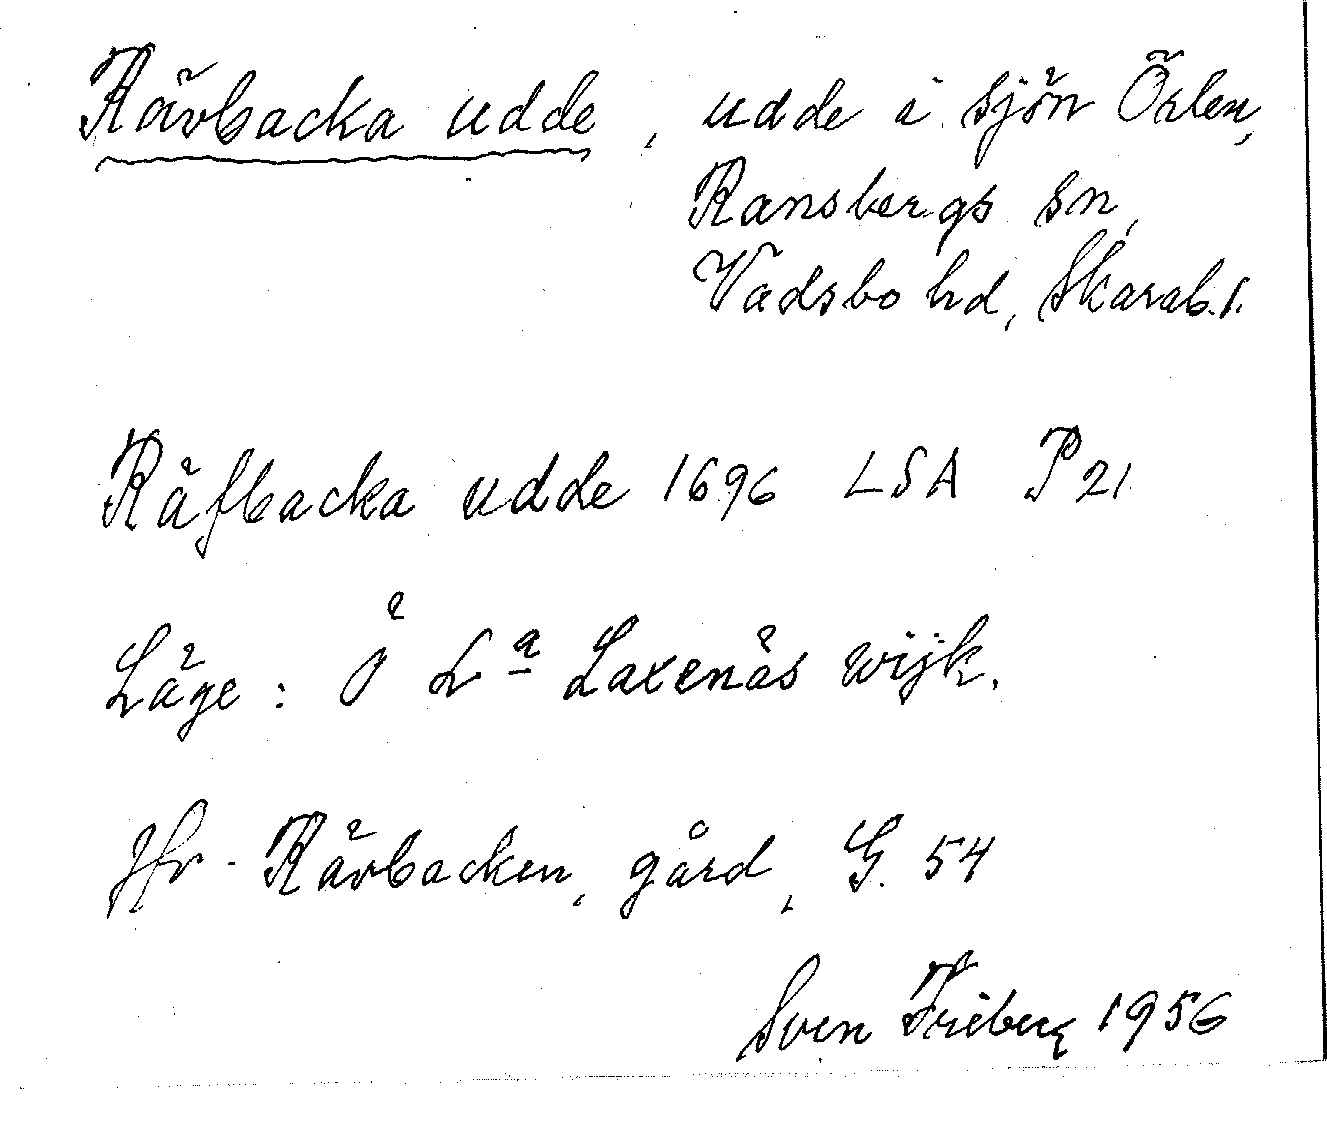 Rävbacka udde, udde i sjön Örlen,
Ransbergs sn,
Vadsbo hd, Skarab. l.
Räfbacka udde 1696 LSA P 21
Läge: Ö Lª Laxenäs wijk.
Jfr Rävbacken, gård, G. 54
Sven Friberg 1956